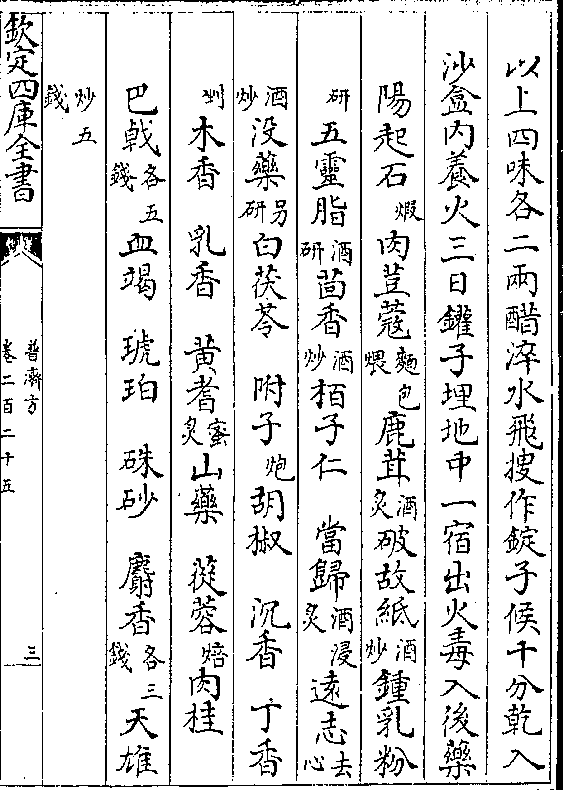 以上四味各二兩醋淬水飛搜作錠子候千分乾入
沙盒内養火三日鑵子埋地中一宿出火毒入後藥
陽起石煆肉荳蔻麵包煨鹿茸酒炙破故紙酒炒鍾乳粉
研五靈脂酒研茴香酒炒栢子仁 當歸酒浸炙遠志去心
酒炒没藥另研白茯苓 附子炮胡椒 沉香 丁香
剉木香 乳香 黄耆蜜炙山藥 蓯蓉焙肉桂
巴戟各五錢血竭 琥珀 硃砂 麝香各三錢天雄
炒五錢
欽定四庫全書
普濟方
卷二百二十五
三